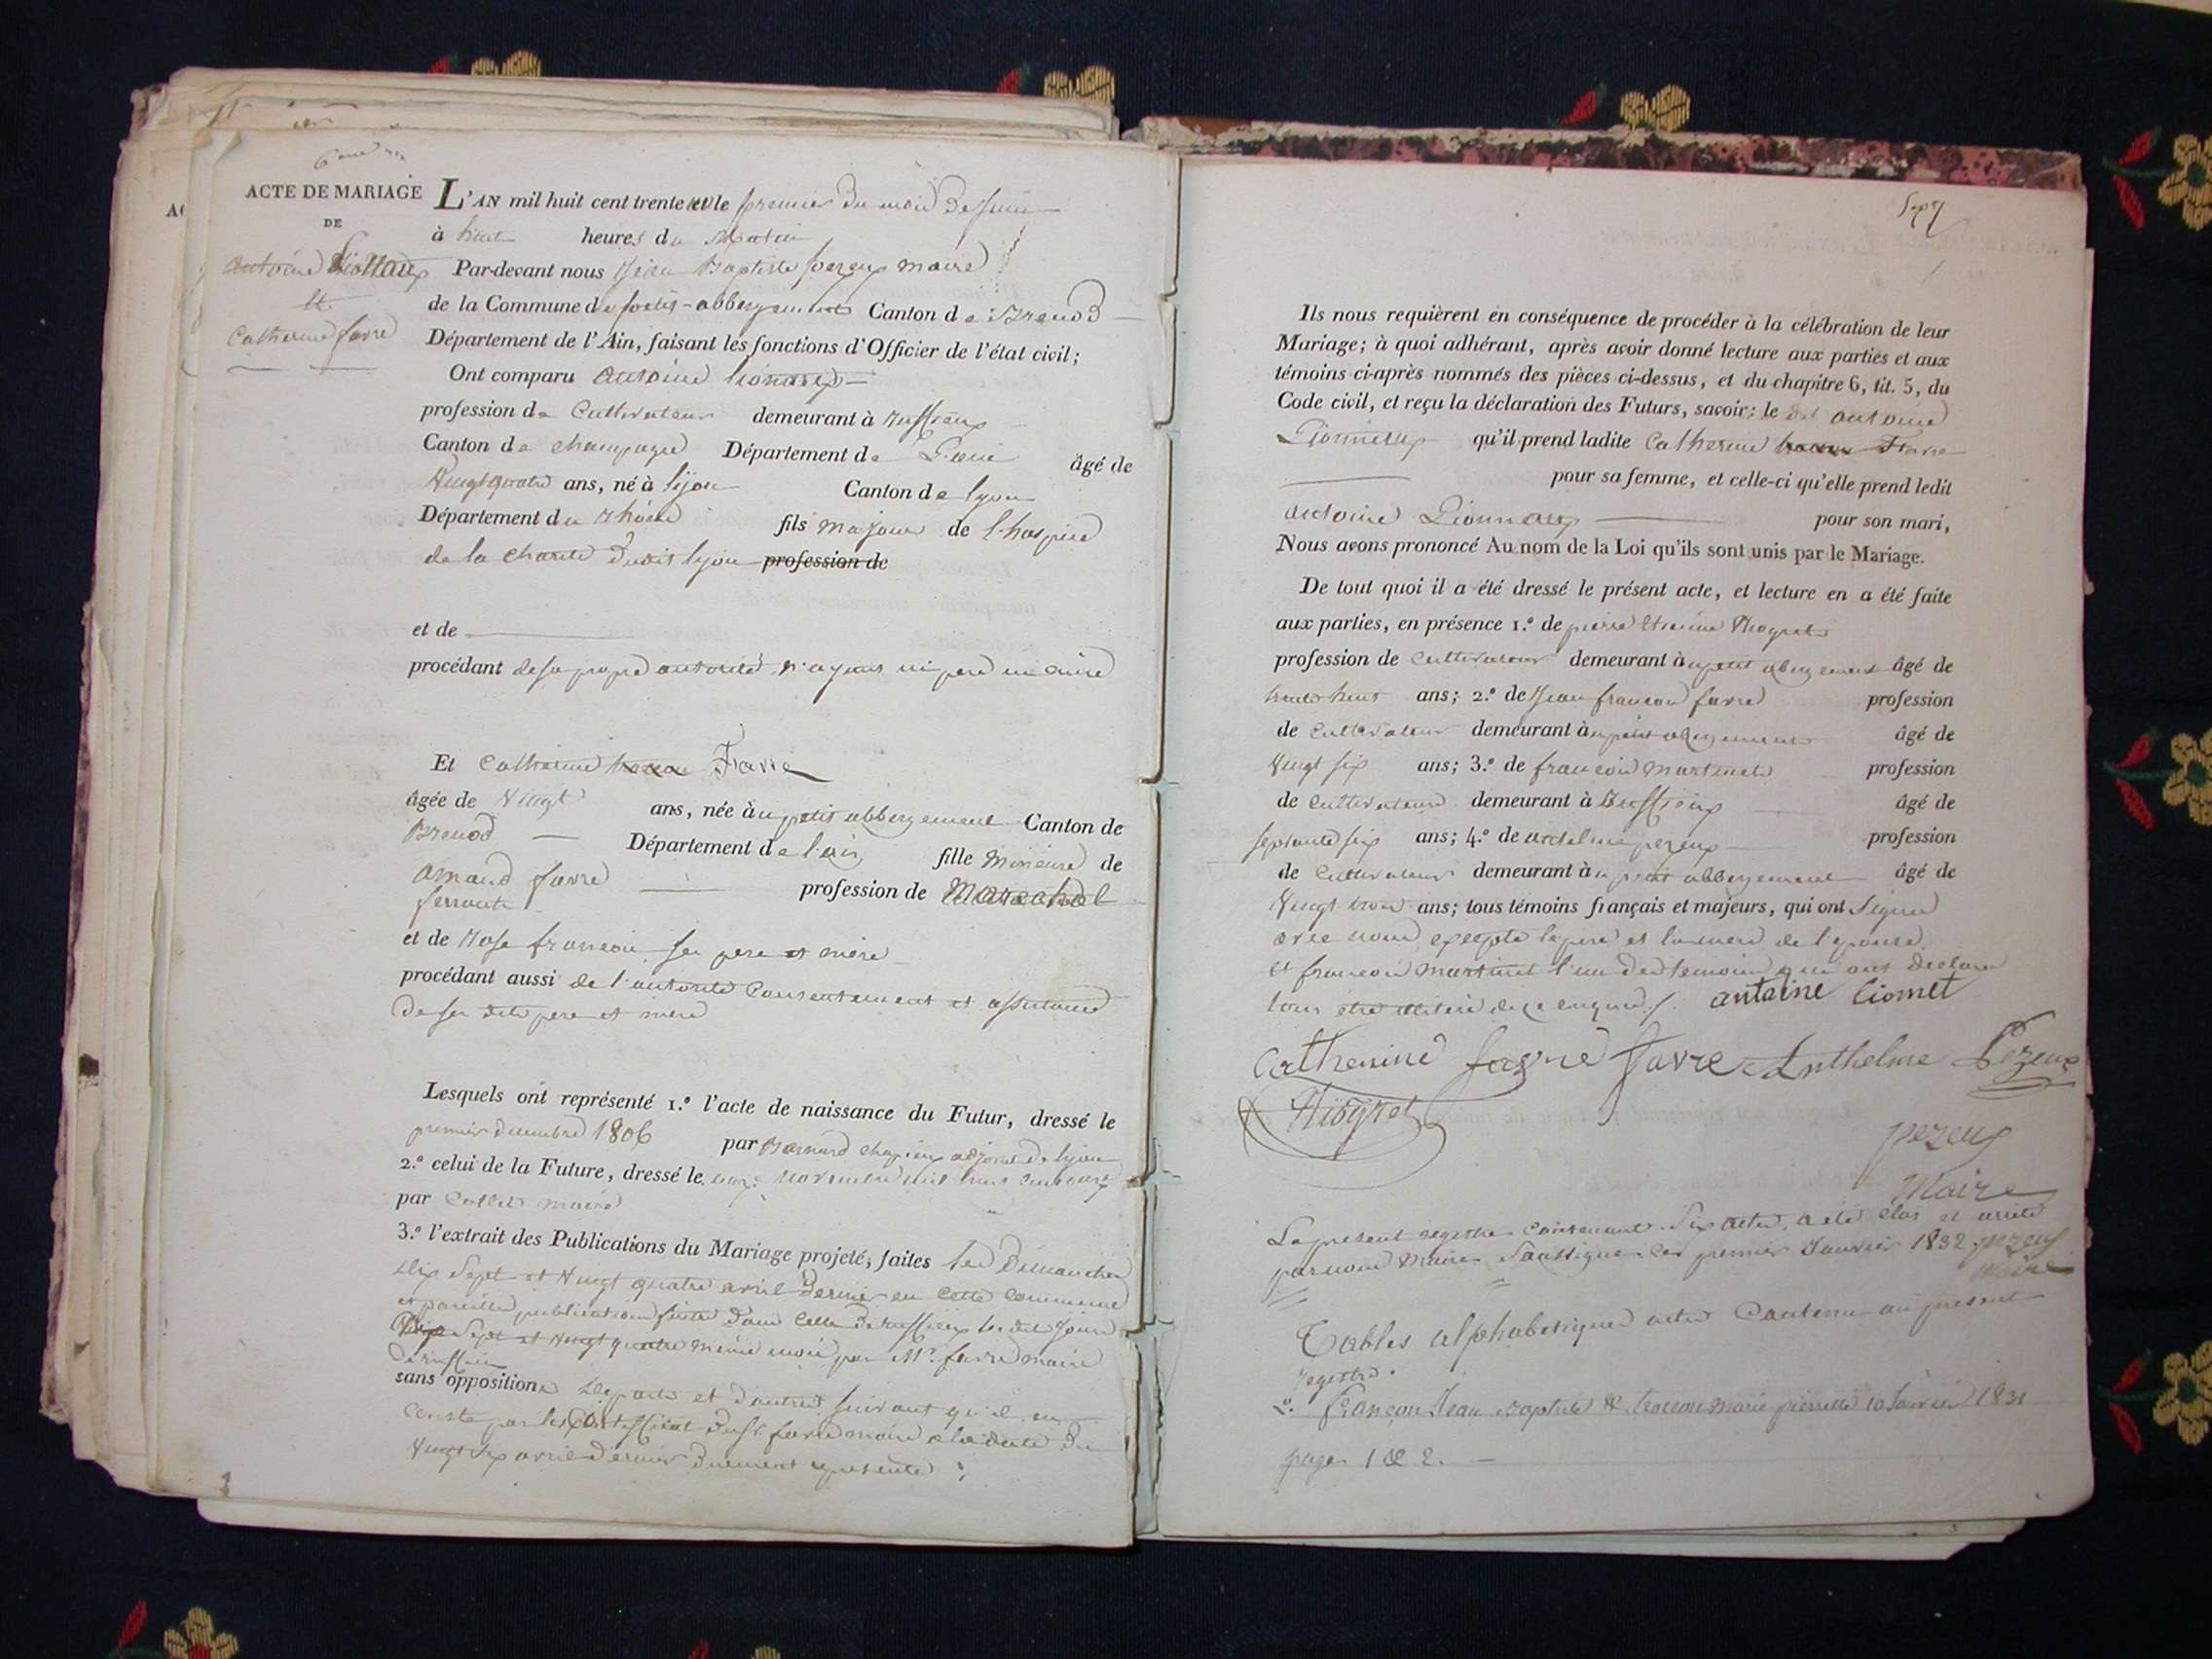 6eme
ACTE DE MARIAGE
DE
Antoine
et
Catherine favre
L'AN mil huit cent trente un le premier du mois de juin
à huit heures du Matin
Par-devant nous Jean Baptiste pezeux maire
de la Commune de petit-abbergement Canton de Brenod
Département de l'Ain, faisant les fonctions d'Officier de l'état civil;
Ont comparu Antoine
profession de Cultivateur demeurant à Ruffieux
Canton de champagne Département de L'ain âgé de
Vingt quatre ans, né à lyon Canton de lyon
Département du Rhône fils majeur de l'hospice
de la charité dudit lyon profession de
et de
procédant de sa propre autorité n'ayant ni pere ni mère
Et Catherine Favre
âgée de Vingt ans, née au petit abbergement Canton de
Brenod Département de l'ain fille mineure de
Amand favre profession de Marechal
ferrant
et de Rose françois ses pere et mère
procédant aussi de l'autorité Consentement et assistance
de ses dits pere et mère
Lesquels ont représenté 1.º l'acte de naissance du Futur, dressé le
premier decembre 1806 par Bernard adjoint de lyon
2.º celui de la Future, dressé le onze novembre mil huit cent onze
par Collet maire
3.º l'extrait des Publications du Mariage projeté, faites les Dimanches
dix Sept et Vingt quatre avril dernier en cette Commune
et pareilles publications faites dans celle de Ruffieux les dits jours
dix Sept et Vingt quatre même mois par Mr. favre maire
de ruffieux
sans opposition de part et d'autre suivant qu'il en
conste par le Certifficat dudit favre maire à la date du
Vingt six avril dernier duement representé
Sept
Ils nous requièrent en conséquence de procéder à la célébration de leur
Mariage; à quoi adhérant, après avoir donné lecture aux parties et aux
témoins ci-après nommés des pièces ci-dessus, et du chapitre 6, tit. 5, du
Code civil, et reçu la déclaration des Futurs, savoir: le dit antoine
qu'il prend ladite Catherine Favre
pour sa femme, et celle-ci qu'elle prend ledit
antoine pour son mari,
Nous avons prononcé Au nom de la Loi qu'ils sont unis par le Mariage.
De tout quoi il a été dressé le présent acte, et lecture en a été faite
aux parties, en présence 1.º de pierre Etienne Niogret
profession de cultivateur demeurant au petit abergement âgé de
trente huit ans; 2.º de Jean françois favre profession
de Cultivateur demeurant au petit abergement âgé de
Vingt six ans; 3.º de françois martinet profession
de cultivateur demeurant à Ruffieux âgé de
septante six ans; 4.º de Antelme pezeux profession
de Cultivateur demeurant au petit abbergement âgé de
Vingt trois ans; tous témoins français et majeurs, qui ont Signé
avec nous excepté le pere et la mere de l'epouse
et françois martinet l'un des temoins qui ont declaré
tous être illiteré de ce enquis /. antoine Liomet
Catherine favre Anthelme Pezeux
Niogret
pezeux
Maire
Le present registre contenant Six actes, a été clos et arreté
par nous Maire Soussigné ce premier Janvier 1832 pezeux
Maire
Tables alphabetiques actes Contenu au present
registre.
1.º françon Jean Baptiste & trocon marie pierrette 10 Janvier 1831
page 1 & 2.